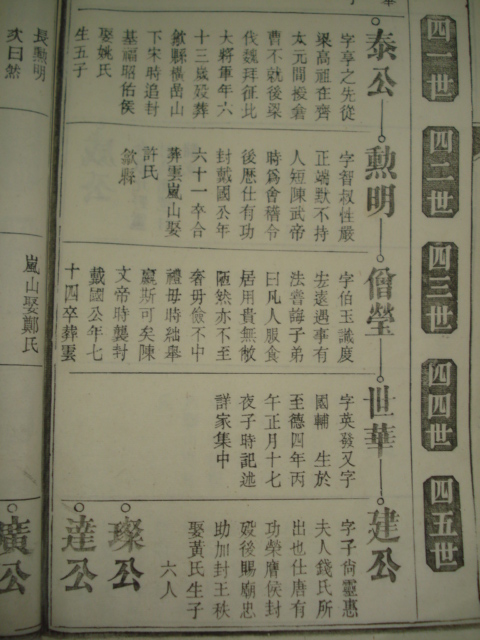 四一世
四二世
四三世
四四世
四五世
泰公
字亨之先從
梁高祖在齊
太元間授倉
曹不就後梁
伐魏拜征北
大將軍年六
十三歲歿葬
歙縣橫嵒山
下宋時追封
基福昭佑侯
娶姚氏
生五子
長勲明
次曰然
勲明
字智叔性嚴
正端默不持
人短陳武帝
時爲會稽令
後歷仕有功
封戴國公年
六十一卒合
葬雲嵐山娶
許氏
歙縣
僧瑩
字伯玉識度
去遠遇事有
法嘗誨子弟
曰凡人服食
居用貴無敝
陋然亦不至
奢毋儉不中
禮毋時絀舉
嬴斯可矣陳
文帝時襲封
戴國公年七
十四卒葬雲
嵐山娶鄭氏
世華
字英發又字
國輔 生於
至德四年丙
午正月十七
夜子時記述
詳家集中
建公
字子尙靈惠
夫人錢氏所
出也仕唐有
功榮膺侯封
歿後賜廟忠
助加封王秩
娶黃氏生子
六人
璨公
達公
廣公